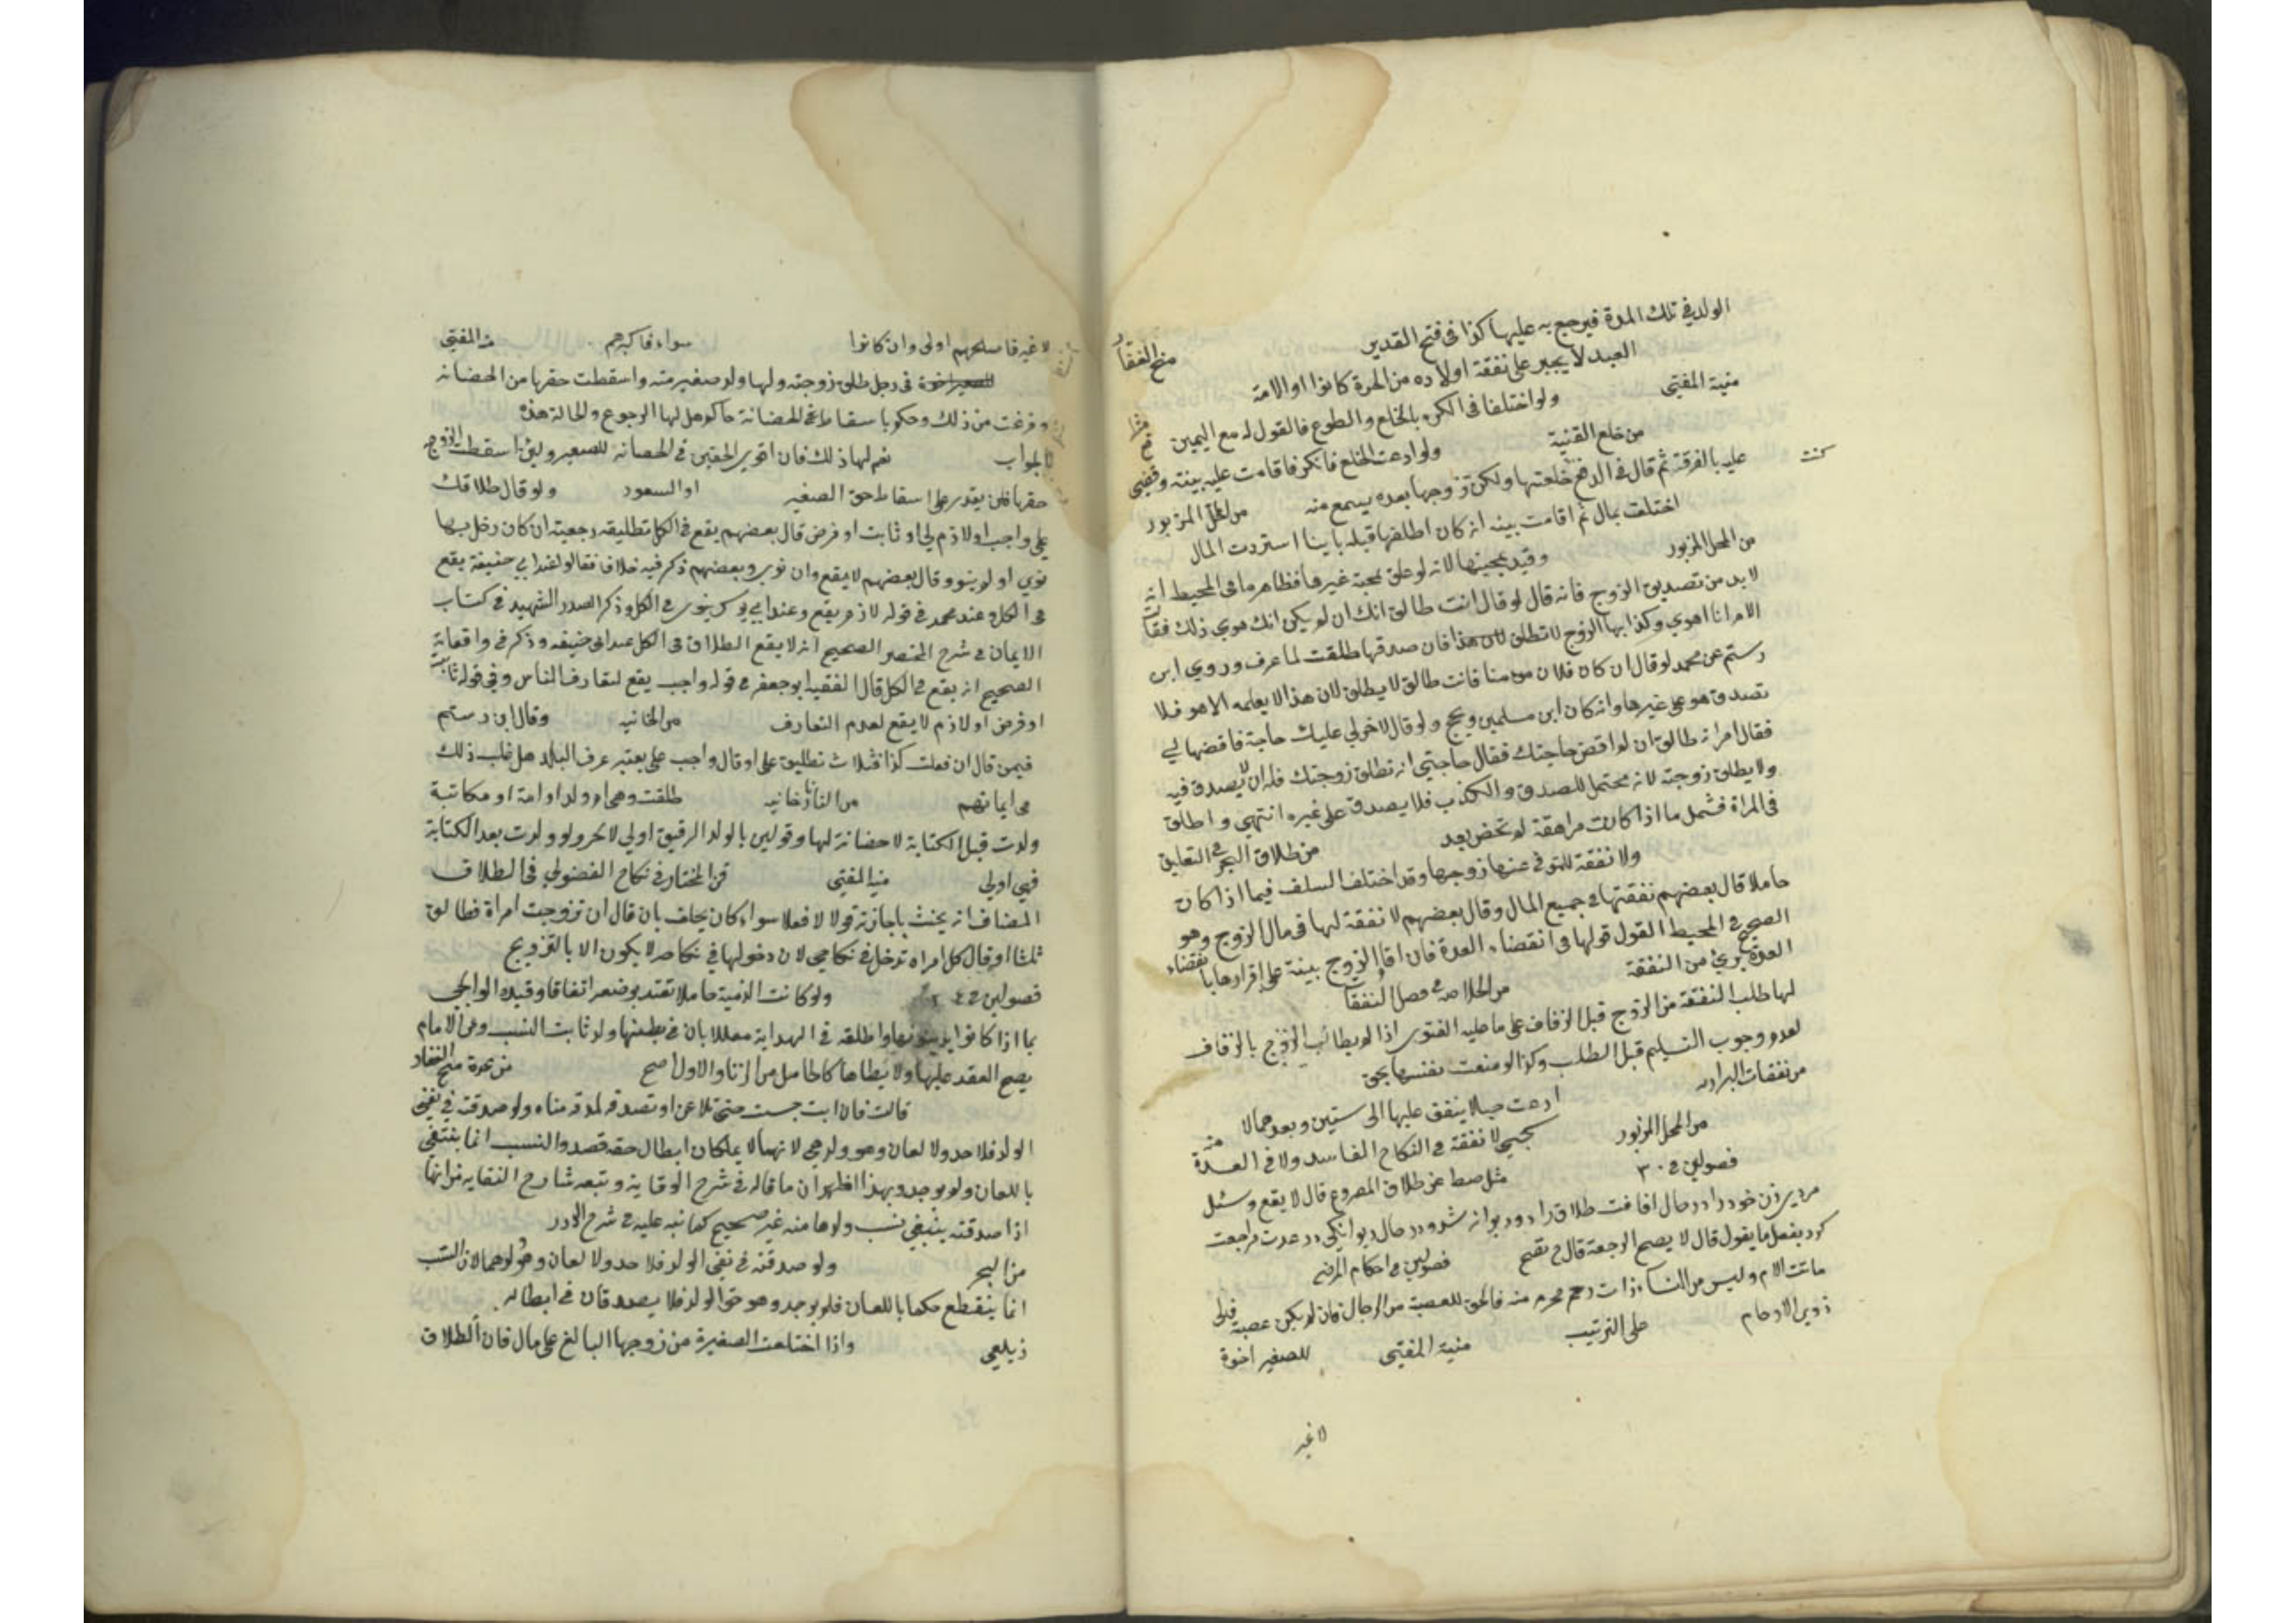 الولد في تلك المدة فيرجع به عليها كذا في فتح القدير
منح الغفار
العبد لا يجبر على نفقة اولاده من الحرة كانوا او الامة
منية المفتي
ولو اختلفا في الكره بالخلع والطوع فالقول له مع اليمين
من خلع القنية
ولو ادعت الخلع فانكر فاقامت عليه بينة وقضى
عليه بالفرقة ثم قال في الدفع كنت خلعتها ولكن تزوجها بعده يسمع منه
من المحل المزبور
اختلعت بمال ثم اقامت بينة انه كان اطلقها قبله باينا استردت المال
من المحل المزبور
وقيد بمحبتها لانه لو علق بمحبة غيرها فظاهر ما في المحيط انه
لا بد من تصديق الزوج فانه قال لو قال انت طالق انك ان لم يكن امك هوى ذلك فقالت
الام انا اهوي وكذابها الزوج لا تطلق لان هذا فان صدقها طلقت لما عرف وروي ابن
رستم عن محمد لو قال ان كان فلان مومنا فانت طالق لا يطلق لان هذا لا يعلمه الا هو فلا
تصدق هو على غيرها وان كان ابن مسلمين ويحج ولو قال لاخر لي عليك حاجة فاقضها لي
فقال امراته طالق ان لم اقض حاجتك فقال حاجتي ان تطلق زوجتك فله ان لا يصدق فيه
ولا يطلق زوجته لانه محتمل للصدق والكذب فلا يصدق على غيره انتهى واطلق
في المراة فشمل ما اذا كانت مراهقة لم تحض بعد
من طلاق البحر في التعليق
ولا نفقة للمتوفى عنها زوجها وقد اختلف السلف فيما اذا كان
حاملا قال بعضهم نفقتها في جميع المال وقال بعضهم لا نفقة لها في مال الزوج وهو
الصحيح في المحيط القول قولها في انقضاء العدة فان اقام الزوج بينة على اقرارها بانقضاء
العدة بري من النفقة
من الخلاصة في فصل النفقات
لها طلب النفقة من الزوج قبل الزفاف على ما عليه الفتوى اذا لم يطالب الزوج بالزفاف
لعدم وجوب التسليم قبل الطلب وكذا لو منعت نفسها بحق
من نفقات البزازيه
ادعت حبلا ينفق عليها الى سنتين وبعدهما لا
من المحل المزبور
لا نفقة في النكاح الفاسد ولا في العدة منه
فصولين في ٣٠
مثل صط عن طلاق المصروع قال لا يقع وسئل
مردي زن خود را در حال افاقت طلاق داد وديوانه شد ودر حال ديوانكي در عدت مراجعت
كرد بفعل ما يقول قال لا يصح الرجعة قال ح تصح
فصولين في احكام المرضى
ماتت الام وليس من النساء ذات رحم محرم منه فالحق للعصبة من الرجال فان لم يكن عصبة فالى
ذوي الارحام
على الترتيب
منية المفتي
للصغير اخوة
لا غير
لا غير فاصلحهم اولى وان كانوا
سواء فاكبرهم
منية المفتي
في رجل طلق زوجته ولها ولد صغير منه واسقطت حقها من الحضانة
وفرغت من ذلك وحكم باسقاط حق الحضانة حاكم هل لها الرجوع والحالة هذه
الجواب
نعم لها ذلك فان اقوى الحقين في الحضانة للصغير ولئن اسقطت الزوجة
حقها فلن يقدر على اسقاط حق الصغير
ابو السعود
ولو قال طلاقك
علي واجب او لازم لي او ثابت او فرض قال بعضهم يقع في الكل تطليقة رجعية ان كان دخل بها
نوى او لم ينو وقال بعضهم لا يقع وان نوى وبعضهم ذكر فيه خلاف فقالوا عند ابي حنيفة يقع
في الكل وعند محمد في قوله لازم يقع وعند ابي يوسف ينوي في الكل وذكر الصدر الشهيد في كتاب
الايمان في شرح المختصر الصحيح انه لا يقع الطلاق في الكل عند ابي حنيفه وذكر في واقعاته
الصحيح انه يقع في الكل قال الفقيه ابو جعفر في قوله واجب يقع لتعارف الناس وفي قوله ثابت
او فرض او لازم لا يقع لعدم التعارف
من الخانيه
وقال ابن رستم
فيمن قال ان فعلت كذا فثلاث تطليق علي او قال واجب علي يعتبر عرف البلد هل غلب ذلك
في ايمانهم
من التاتارخانيه
طلقت وهي ام ولد او امة او مكاتبة
ولدت قبل الكتابة لا حضانة لها وقولين بالولد الرقيق اولى لا نحر ولو ولدت بعد الكتابة
فهي اولى
منية المفتي
المختار في نكاح الفضولي في الطلاق
المضاف انه يحنث باجازته قولا لا فعلا سواء كان يحلف بان قال ان تزوجت امراة فطالق
ثلثا او قال كل امراة تدخل في نكاحي لان دخولها في نكاحه لا يكون الا بالتزويج
فصولين في ٢٤
ولو كانت الذمية حاملا تعتد بوضعه اتفاقا وقيده الولوالجي
بما اذا كانوا يدينونها واطلقه في الهداية معللا بان في بطنها ولد ثابت النسب وعن الامام
يصح العقد عليها ولا يطاها كالحامل من الزنا والاول اصح
من عدة منح الغفار
قالت فان ابت حبست حتى تلاعن او تصدقه لمدقه مناه ولو صدقته في نفي
الولد فلا حد ولا لعان وهو ولدهما لانهما لا يملكان ابطال حقه قصدا والنسب انما ينتفي
باللعان ولم يوجد وبهذا اظهر ان ما قاله في شرح الوقاية وتبعه شارح النقاية من انها
اذا صدقته ينتفي نسب ولدها منه غير صحيح كما نبه عليه في شرح الدرر
من البحر
ولو صدقته في نفي الولد فلا حد ولا لعان وهو ولدهما لان النسب
انما ينقطع حكما باللعان فلم يوجد وهو حق الولد فلا يصدقان في ابطاله
زيلعي
واذا اختلعت الصغيرة من زوجها البالغ على مال فان الطلاق